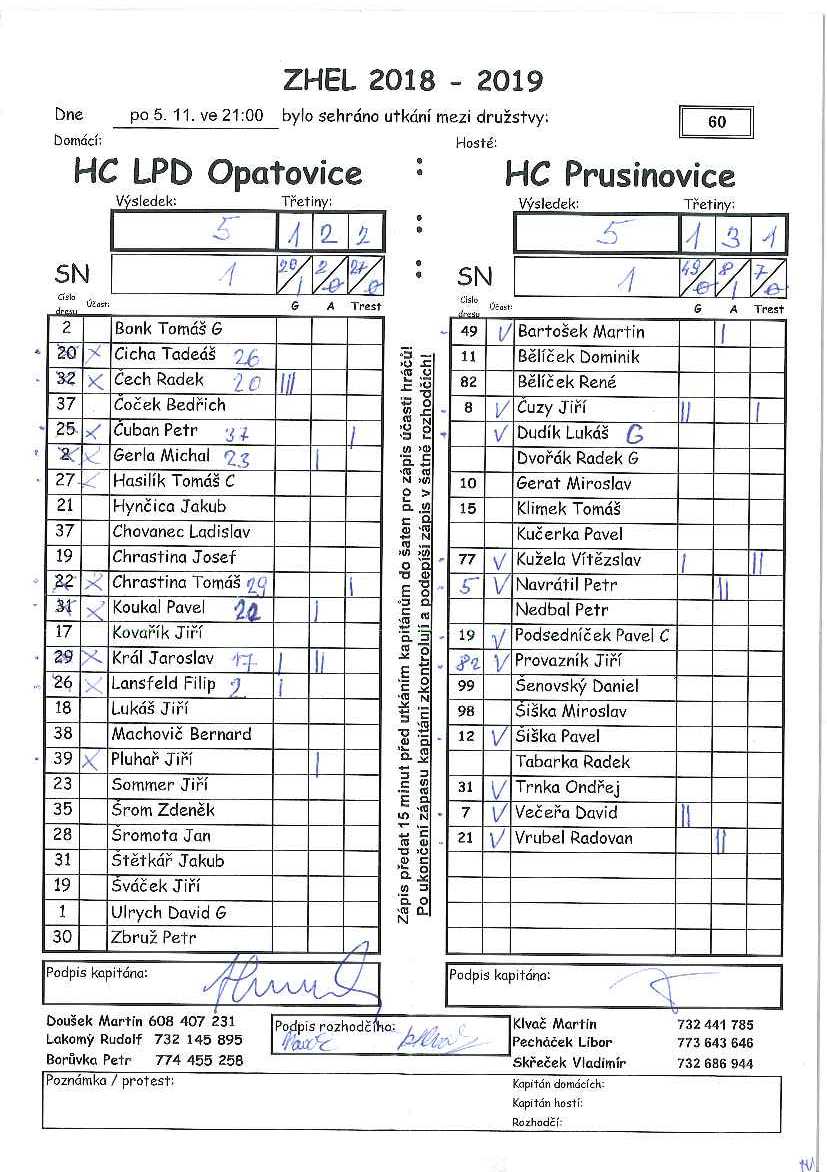 ZHEL 2018 - 2019
Dne po 5. 11. ve 21:00 bylo sehráno utkání mezi družstvy:
60
Domácí:
Hosté:
HC LPD Opatovice : HC Prusinovice
Výsledek: Třetiny: Výsledek: Třetiny:
5 1 2 2 : 5 1 3 1
SN 1 20/1 2/0 27/0 : SN 1 49/0 8/1 7/0
Číslo dresu Účast: G A Trest
2 Bonk Tomáš G
20 X Cicha Tadeáš 26
32 X Čech Radek 20 |||
37 Čoček Bedřich
25 X Čuban Petr 37 |
2 X Gerla Michal 23 |
27 X Hasilík Tomáš C
21 Hynčica Jakub
37 Chovanec Ladislav
19 Chrastina Josef
22 X Chrastina Tomáš 29 |
31 X Koukal Pavel 22 |
17 Kovařík Jiří
29 X Král Jaroslav 17 | ||
26 X Lansfeld Filip 2 |
18 Lukáš Jiří
38 Machovič Bernard
39 X Pluhař Jiří |
23 Sommer Jiří
35 Šrom Zdeněk
28 Šromota Jan
31 Štětkář Jakub
19 Šváček Jiří
1 Ulrych David G
30 Zbruž Petr
Zápis předat 15 minut před utkáním kapitánům do šaten pro zápis účasti hráčů!
Po ukončení zápasu kapitáni zkontrolují a podepíší zápis v šatně rozhodčích!
Číslo dresu Účast: G A Trest
49 V Bartošek Martin |
11 Bělíček Dominik
82 Bělíček René
8 V Čuzy Jiří || |
V Dudík Lukáš G
Dvořák Radek G
10 Gerat Miroslav
15 Klimek Tomáš
Kučerka Pavel
77 V Kužela Vítězslav | ||
5 V Navrátil Petr ||
Nedbal Petr
19 V Podsedníček Pavel C
82 V Provazník Jiří
99 Šenovský Daniel
98 Šiška Miroslav
12 V Šiška Pavel
Tabarka Radek
31 V Trnka Ondřej
7 V Večeřa David ||
21 V Vrubel Radovan ||
Podpis kapitána:
Podpis kapitána:
Doušek Martin 608 407 231
Lakomý Rudolf 732 145 895
Borůvka Petr 774 455 258
Podpis rozhodčího:
Klvač Martin 732 441 785
Pecháček Libor 773 643 646
Skřeček Vladimír 732 686 944
Poznámka / protest:
Kapitán domácích:
Kapitán hostí:
Rozhodčí: